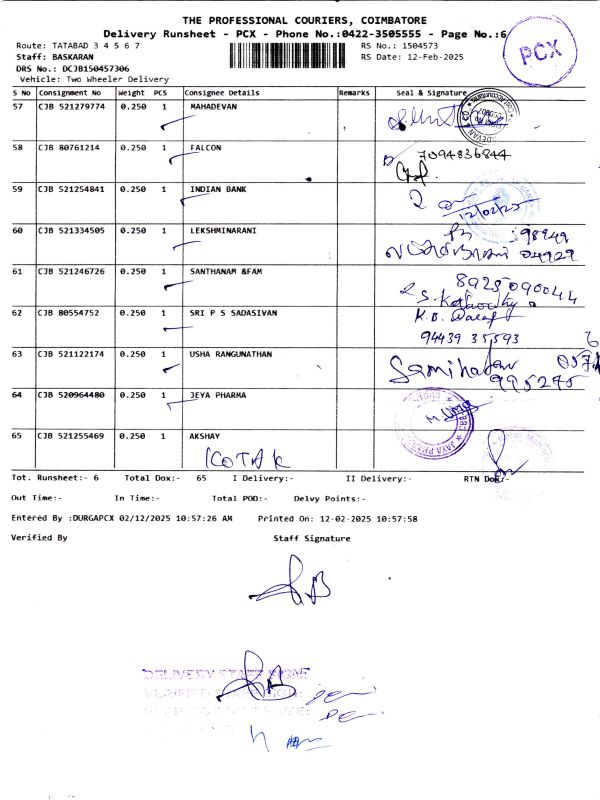 THE PROFESSIONAL COURIERS, COIMBATORE
Delivery Runsheet - PCX - Phone No.:0422-3505555 - Page No.:6
Route: TATABAD 3 4 5 6 7
RS No.: 1504573
Staff: BASKARAN
RS Date: 12-Feb-2025
DRS No.: DCJB150457306
Vehicle: Two Wheeler Delivery
PCX
S No Consignment No Weight PCS Consignee Details Remarks Seal & Signature
57 CJB 521279774 0.250 1 MAHADEVAN
58 CJB 80761214 0.250 1 FALCON 7094836844
59 CJB 521254841 0.250 1 INDIAN BANK 12/02/25
60 CJB 521334505 0.250 1 LEKSHMINARANI 98949
04929
61 CJB 521246726 0.250 1 SANTHANAM &FAM 8925090044
62 CJB 80554752 0.250 1 SRI P S SADASIVAN K.B.
94439 35593
63 CJB 521122174 0.250 1 USHA RANGUNATHAN
995275
64 CJB 520964480 0.250 1 JEYA PHARMA
65 CJB 521255469 0.250 1 AKSHAY
KOTAK
Tot. Runsheet:- 6 Total Dox:- 65 I Delivery:- II Delivery:- RTN Dox:-
Out Time:- In Time:- Total POD:- Delvy Points:-
Entered By :DURGAPCX 02/12/2025 10:57:26 AM Printed On: 12-02-2025 10:57:58
Verified By Staff Signature
DELIVERY STAFF SIGN: